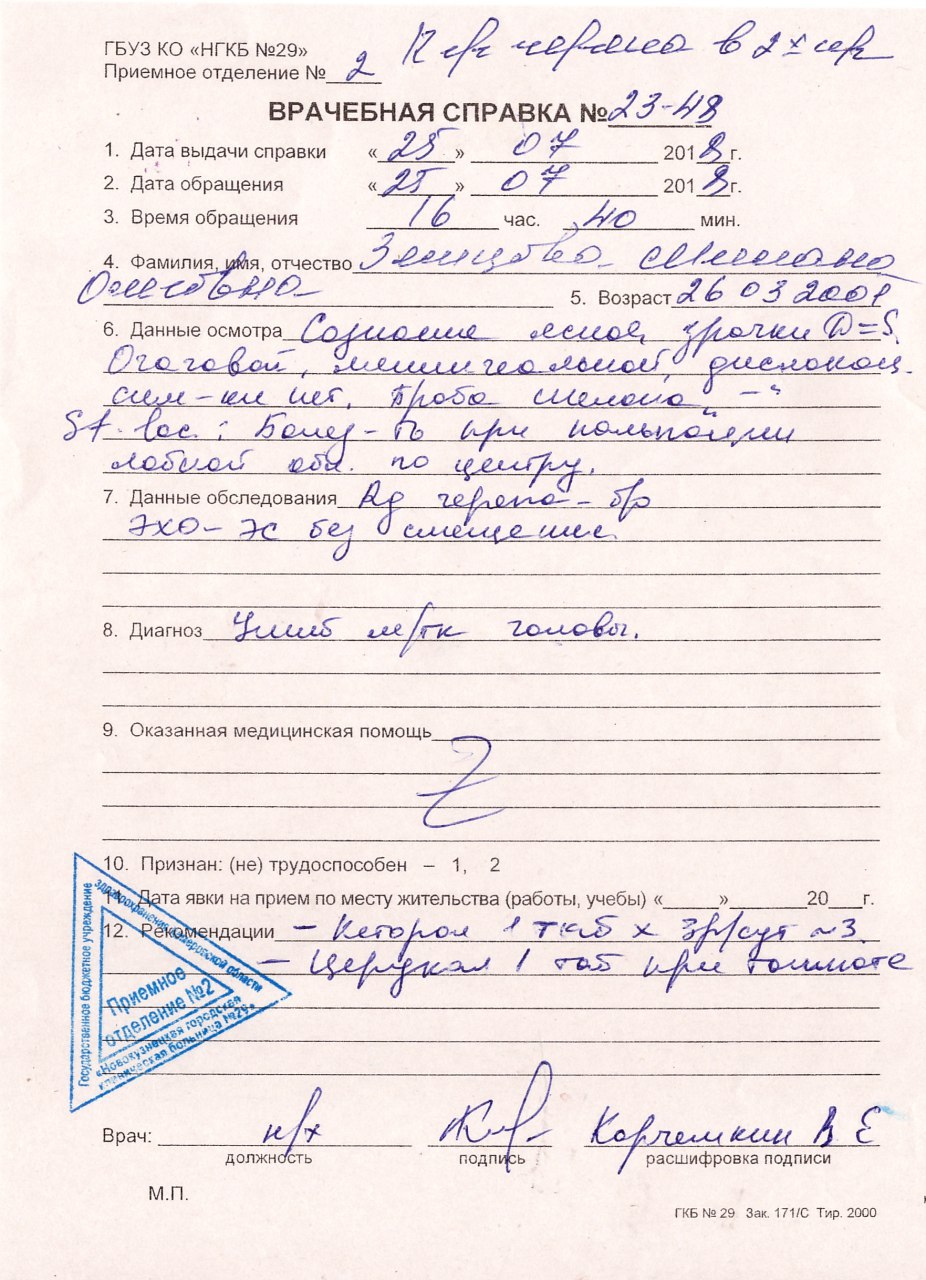 ГБУЗ КО «НГКБ №29»
Приемное отделение № 2
R-гр черепа в 2х пр
ВРАЧЕБНАЯ СПРАВКА № 23-48
1. Дата выдачи справки «25» 07 2018 г.
2. Дата обращения «25» 07 2018 г.
3. Время обращения 16 час. 40 мин.
4. Фамилия, имя, отчество
5. Возраст 26 03 2001
6. Данные осмотра Сознание ясное, зрачки D=S.
Очаговой, менингеальной, дислокац.
сим-ки нет. Проба Шелона „-“
St. loc.:Болез-ть при пальпации
лобной обл. по центру.
7. Данные обследования Rg черепа – б/о
ЭХО-ЭС без смещения.
8. Диагноз Ушиб м/тк головы.
9. Оказанная медицинская помощь
10. Признан: (не) трудоспособен – 1, 2
11. Дата явки на прием по месту жительства (работы, учебы) «____»______ 20___г.
12. Рекомендации – Кеторол 1 таб х 3р/сут №3.
– Церукал 1 таб при тошноте
Государственное бюджетное учреждение
здравоохранения Кемеровской области
Приемное
отделение №2
«Новокузнецкая городская
клиническая больница №29»
Врач: н/х Корчемкин В Е
должность подпись расшифровка подписи
М.П.
ГКБ № 29 Зак. 171/С Тир. 2000